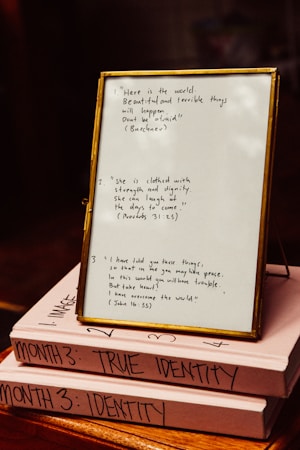 1. "Here is the world.
Beautiful and terrible things
will happen.
Dont be afraid"
(Buechner)
2. "She is clothed with
strength and dignity
she can laugh at
the days to come"
(Proverbs 31:25)
3 "I have told you these things,
so that in me you may have peace.
In this world you will have trouble.
But take heart!
I have overcome the world"
(John 16:33)
1 IMAGE
2
3
4
MONTH 3: TRUE IDENTITY
MONTH 3: IDENTITY